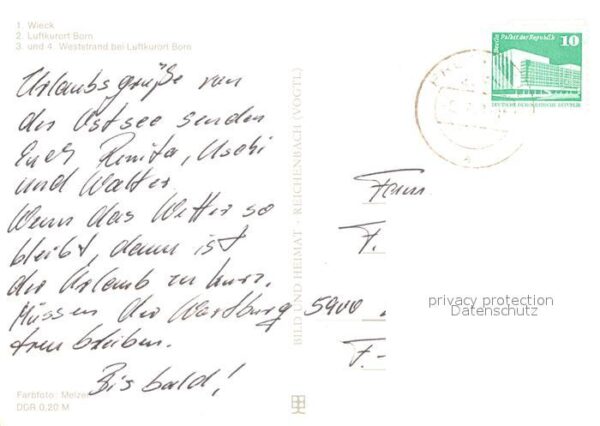 1. Wieck
2. Luftkurort Born
3. und 4. Weststrand bei Luftkurort Born
Urlaubsgrüße von
der Ostsee senden
Euch Renita, Uschi
und Walter
Wenn das Wetter so
bleibt, dann ist
der Urlaub zu kurz.
Müssen der Wartburg
treu bleiben.
Bis bald!
Farbfoto: Melzer
DGR 0,20 M
BILD UND HEIMAT - REICHENBACH (VOGTL)
Berlin Palast der Republik 10
DEUTSCHE DEMOKRATISCHE REPUBLIK
Fam.
F.
5900
F.-
privacy protection
Datenschutz